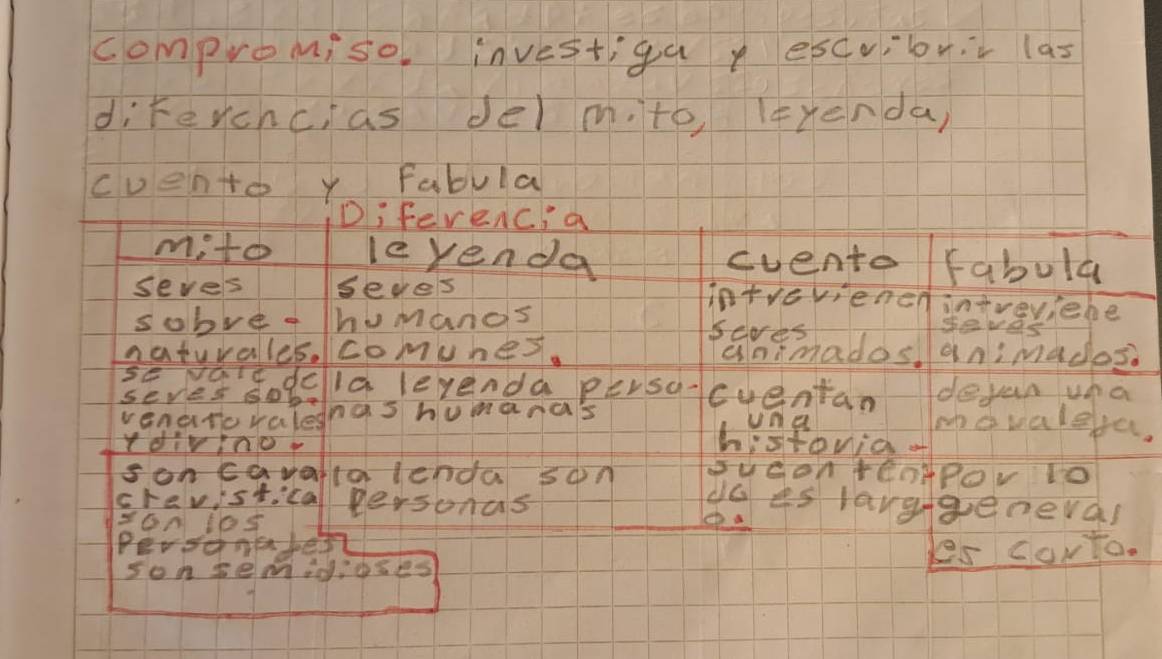 compromiso. investiga y escribrir las
diferencias del mito, leyenda,
cuento y Fabula
Diferencia
mito leyenda cuento fabula
seres
sobre-
naturales.
seres
humanos
comunes.
intrevienen
seres
animados.
intreviene
seres
animados.
se vale de
seres sob-
renaturales
y divino.
la leyenda perso-
nas humanas
cuentan
una
historia-
dejan una
moraleja.
son cara
cteristica
son los
personajes
son semidioses
la lenda son
personas
su conteni
do es larg-
o.
Por lo
general
es corto.